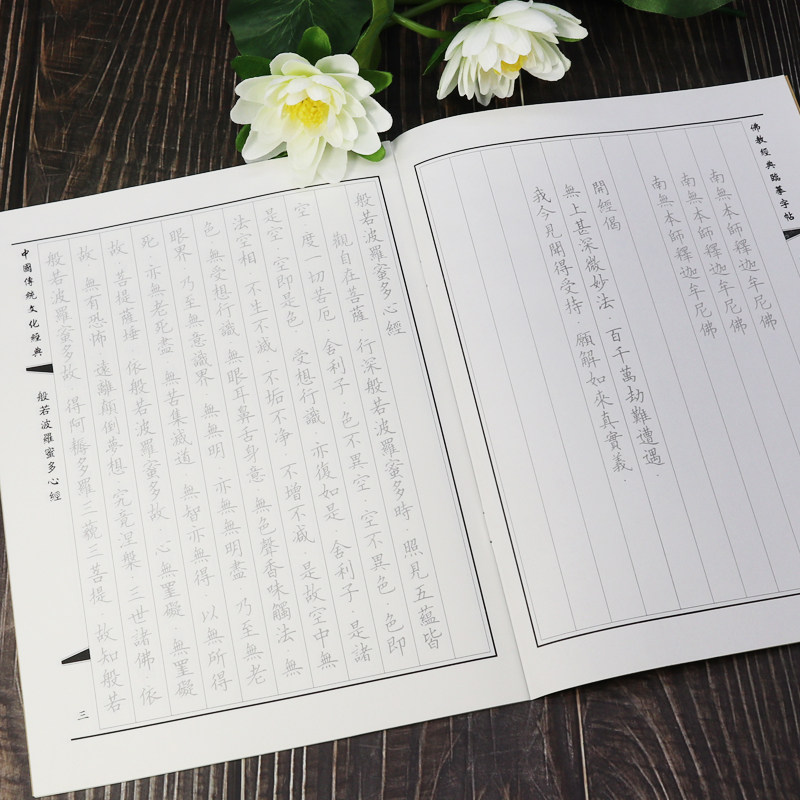 佛教經典臨摹字帖
南無本師釋迦牟尼佛
南無本師釋迦牟尼佛
南無本師釋迦牟尼佛
開經偈
無上甚深微妙法·百千萬劫難遭遇·
我今見聞得受持·願解如來真實義·
般若波羅蜜多心經
觀自在菩薩 行深般若波羅蜜多時·照見五蘊皆
空 度一切苦厄 舍利子·色不異空·空不異色·色即
是空·空即是色 受想行識 亦復如是 舍利子·是諸
法空相 不生不滅·不垢不净·不增不减·是故空中無
色·無受想行識·無眼耳鼻舌身意 無色聲香味觸法 無
眼界·乃至無意識界 無無明 亦無無明盡·乃至無老
死·亦無老死盡 無苦集滅道 無智亦無得·以無所得
故 菩提薩埵·依般若波羅蜜多故·心無罣礙·無罣礙
故 無有恐怖 遠離顛倒夢想·究竟涅槃·三世諸佛·依
般若波羅蜜多故 得阿耨多羅三藐三菩提 故知般若
中國傳統文化經典
般若波羅蜜多心經
三